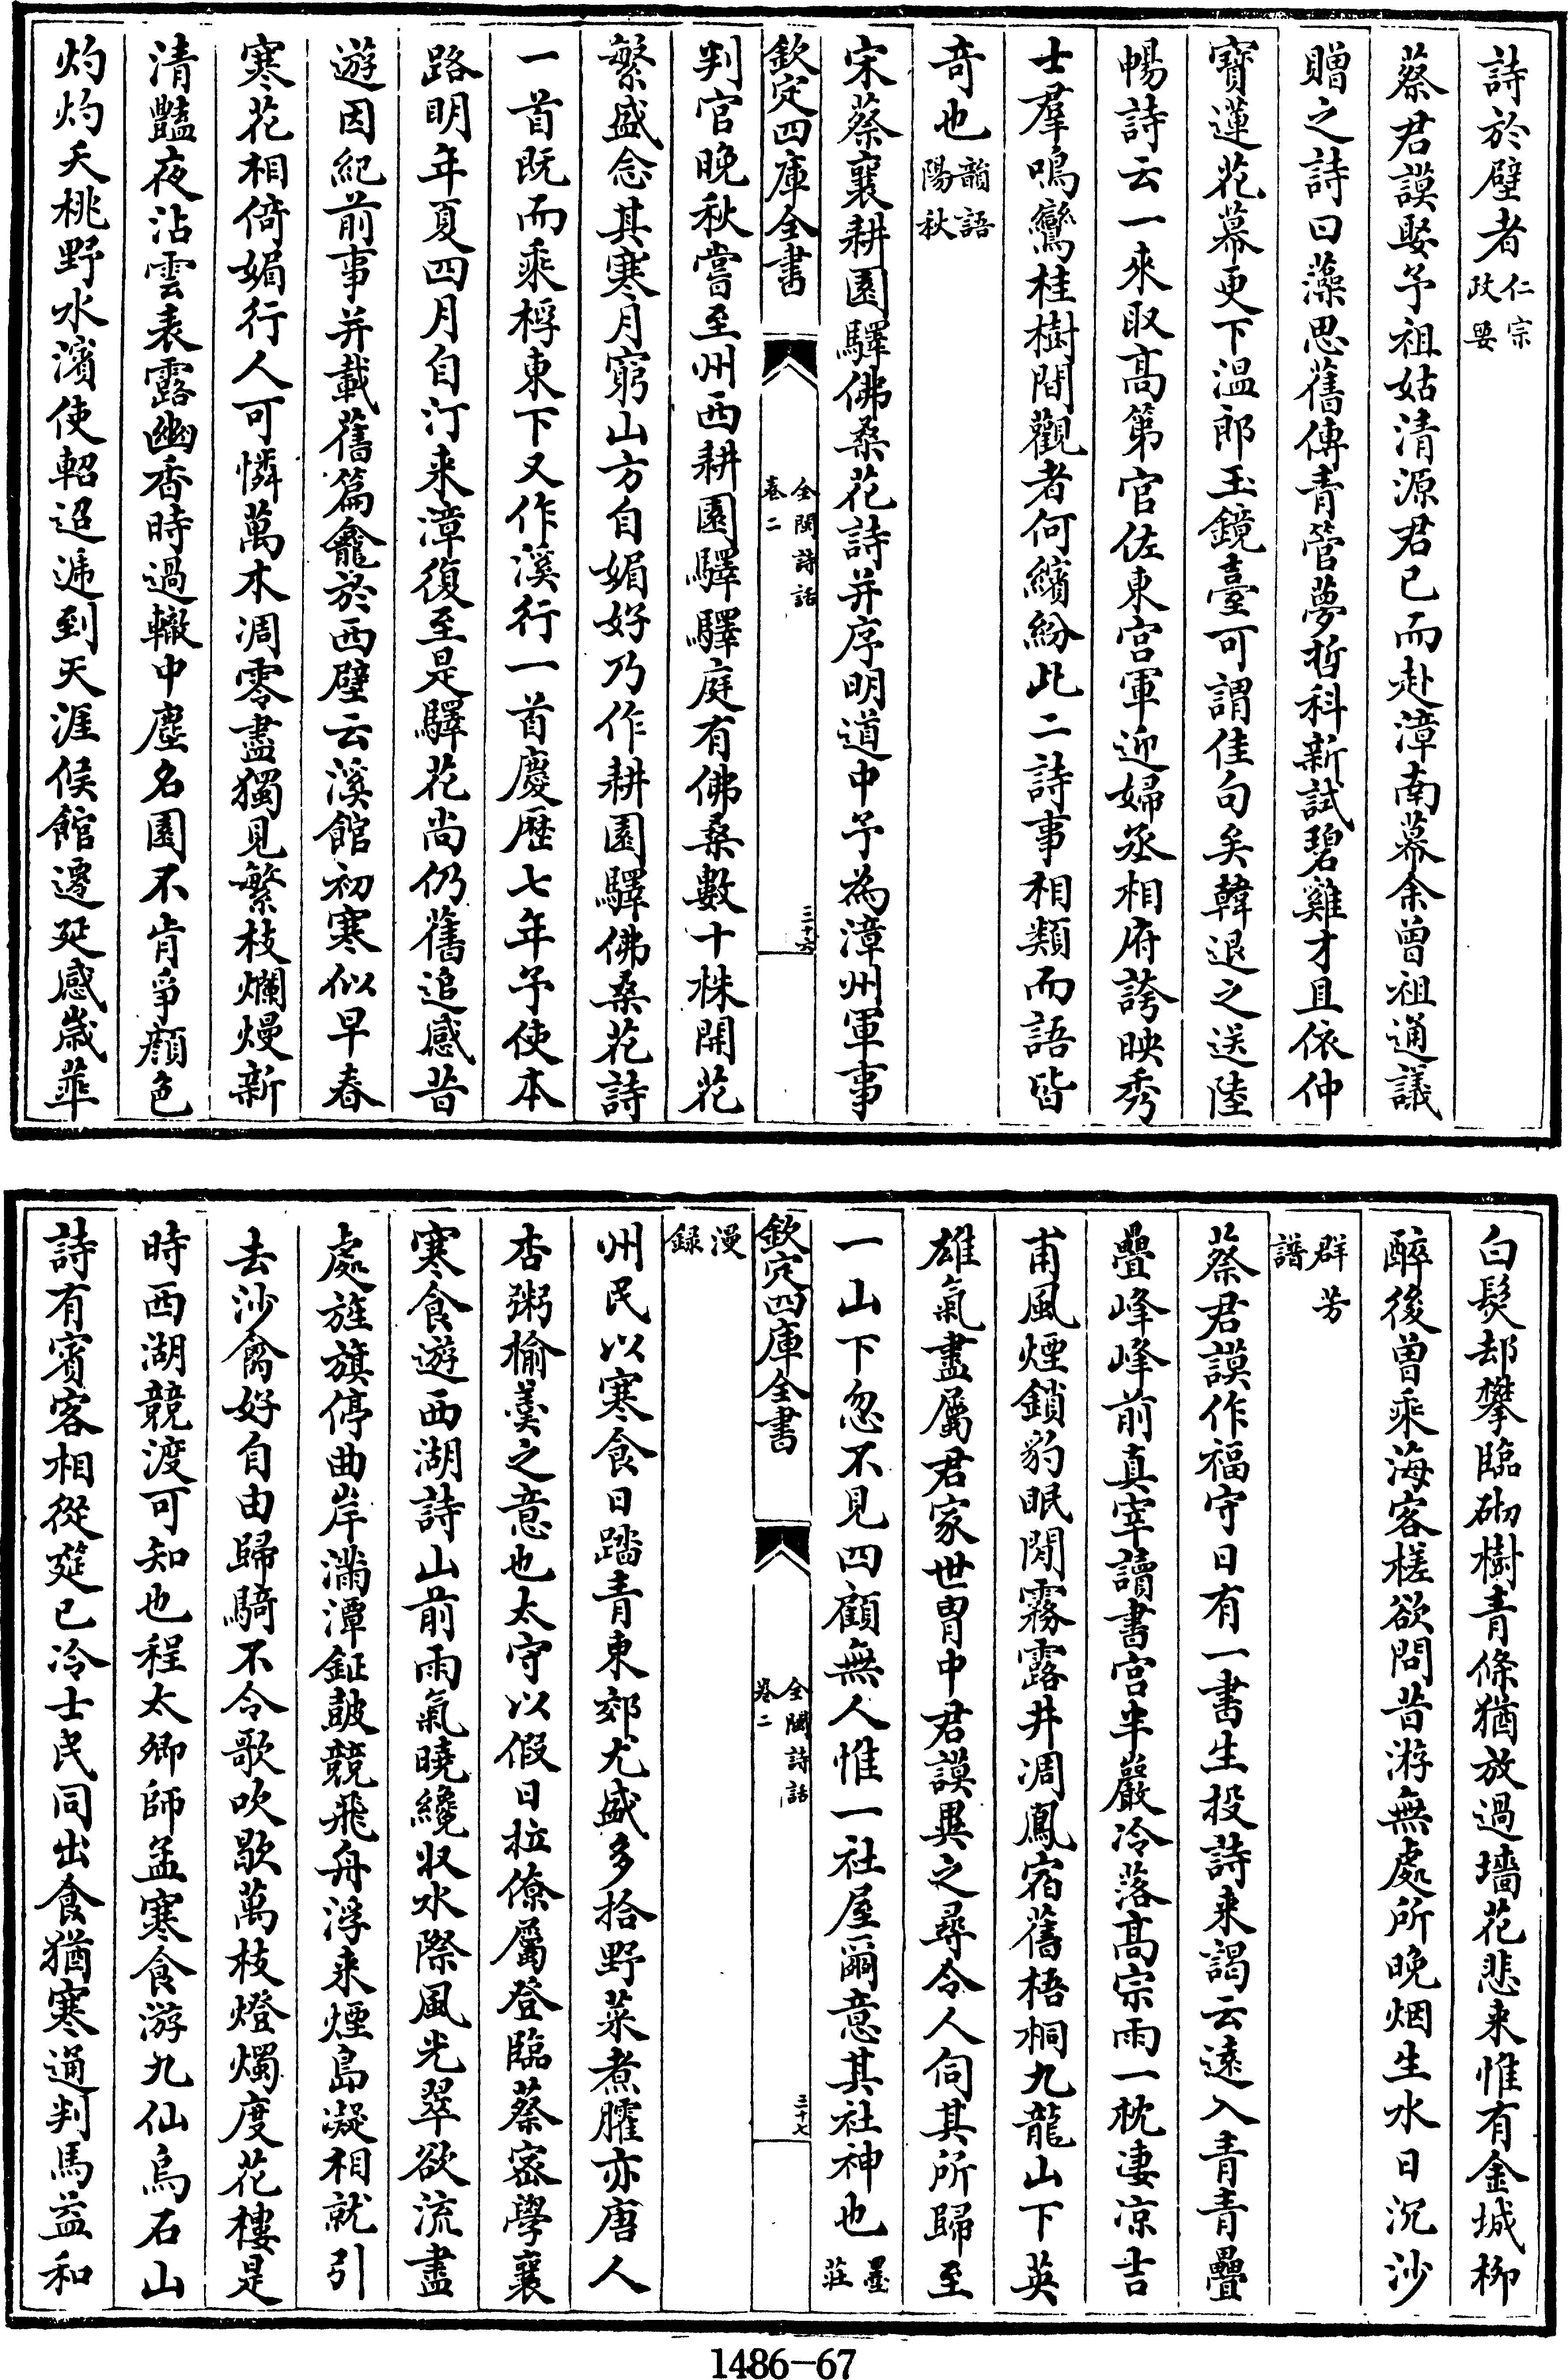 詩於壁者仁宗政要
蔡君謨娶予祖姑清源君已而赴漳南幕余曾祖通議
贈之詩曰藻思舊傳青管夢哲科新試碧雞才且依仲
寳蓮花幕更下温郎玉鏡臺可謂佳句矣韓退之送陸
暢詩云一來取髙第官佐東宫軍迎婦丞相府誇映秀
士羣鳴鸞桂樹間觀者何繽紛此二詩事相類而語皆
竒也韻語陽秋
宋蔡襄耕園驛佛桑花詩并序明道中予為漳州軍事
欽定四庫全書
全閩詩話
卷二
三十六
判官晚秋嘗至州西耕園驛驛庭有佛桑數十株開花
繁盛念其寒月窮山方自媚好乃作耕園驛佛桑花詩
一首既而乘桴東下又作溪行一首慶歴七年予使本
路明年夏四月自汀来漳復至是驛花尚仍舊追感昔
遊因紀前事并載舊篇龕於西壁云溪館初寒似早春
寒花相倚媚行人可憐萬木凋零盡獨見繁枝爛熳新
清豔夜沾雲表露幽香時過轍中塵名園不肯爭顔色
灼灼夭桃野水濱使軺迢遞到天涯候館遷延感嵗華
白髮却攀臨砌樹青條猶放過墻花悲来惟有金城栁
醉後曾乘海客槎欲問昔游無處所晚烟生水日沉沙
群芳譜
蔡君謨作福守日有一書生投詩来謁云逺入青青疊
疊峰峰前真宰讀書宫半巖冷落髙宗雨一枕凄凉吉
甫風煙鎖豹眠閒霧露井凋鳳宿舊梧桐九龍山下英
雄氣盡屬君家世胄中君謨異之尋令人伺其所歸至
一山下忽不見四顧無人惟一社屋爾意其社神也墨莊
漫録
欽定四庫全書
全閩詩話
卷二
三十七
州民以寒食日踏青東郊尤盛多拾野菜煮臛亦唐人
杏粥榆羮之意也太守以假日拉僚屬登臨蔡密學襄
寒食遊西湖詩山前雨氣曉纔収水際風光翠欲流盡
處旌旗停曲岸滿潭鉦皷競飛舟浮来煙島凝相就引
去沙禽好自由歸騎不令歌吹歇萬枝燈燭度花樓是
時西湖競渡可知也程太卿師孟寒食游九仙烏石山
詩有賓客相從筵已冷士民同出食猶寒通判馬益和
1486-67